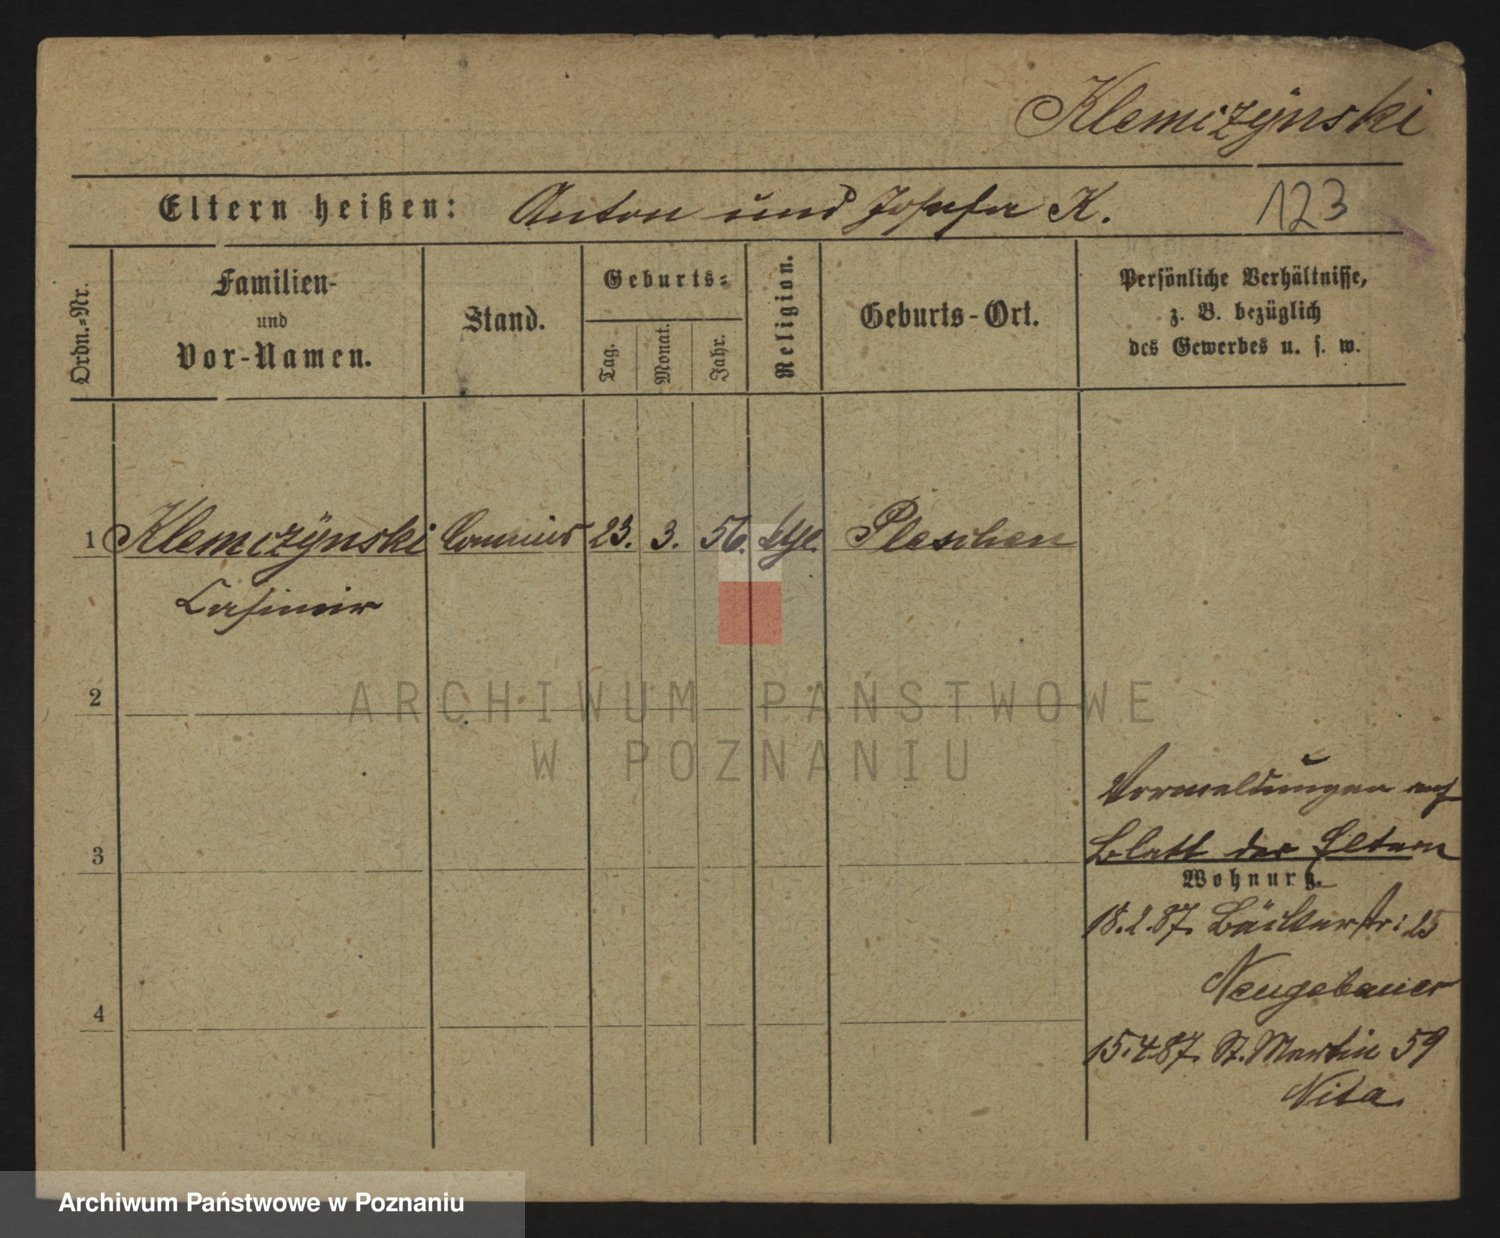 Klemczÿnski
Eltern heißen: Anton und Josefa K. 123
Ordn.-Nr.
Familien-
und
Vor-Namen.
Stand.
Geburts-
Tag.
Monat.
Jahr.
Religion.
Geburts-Ort.
Persönliche Verhältnisse,
z. B. bezüglich
des Gewerbes u. s. w.
1 Klemczÿnski Commis 23. 3. 56. ktḥ. Pleschen
Casimir
2
ARCHIWUM PAŃSTWOWE
W POZNANIU
Vormeldungen auf
3 Blatt der Eltern
Wohnung.
18.2.87. Bäckerstr: 25
Neugebauer
4
15.4.87. St. Martin 59
Nita.
Archiwum Państwowe w Poznaniu